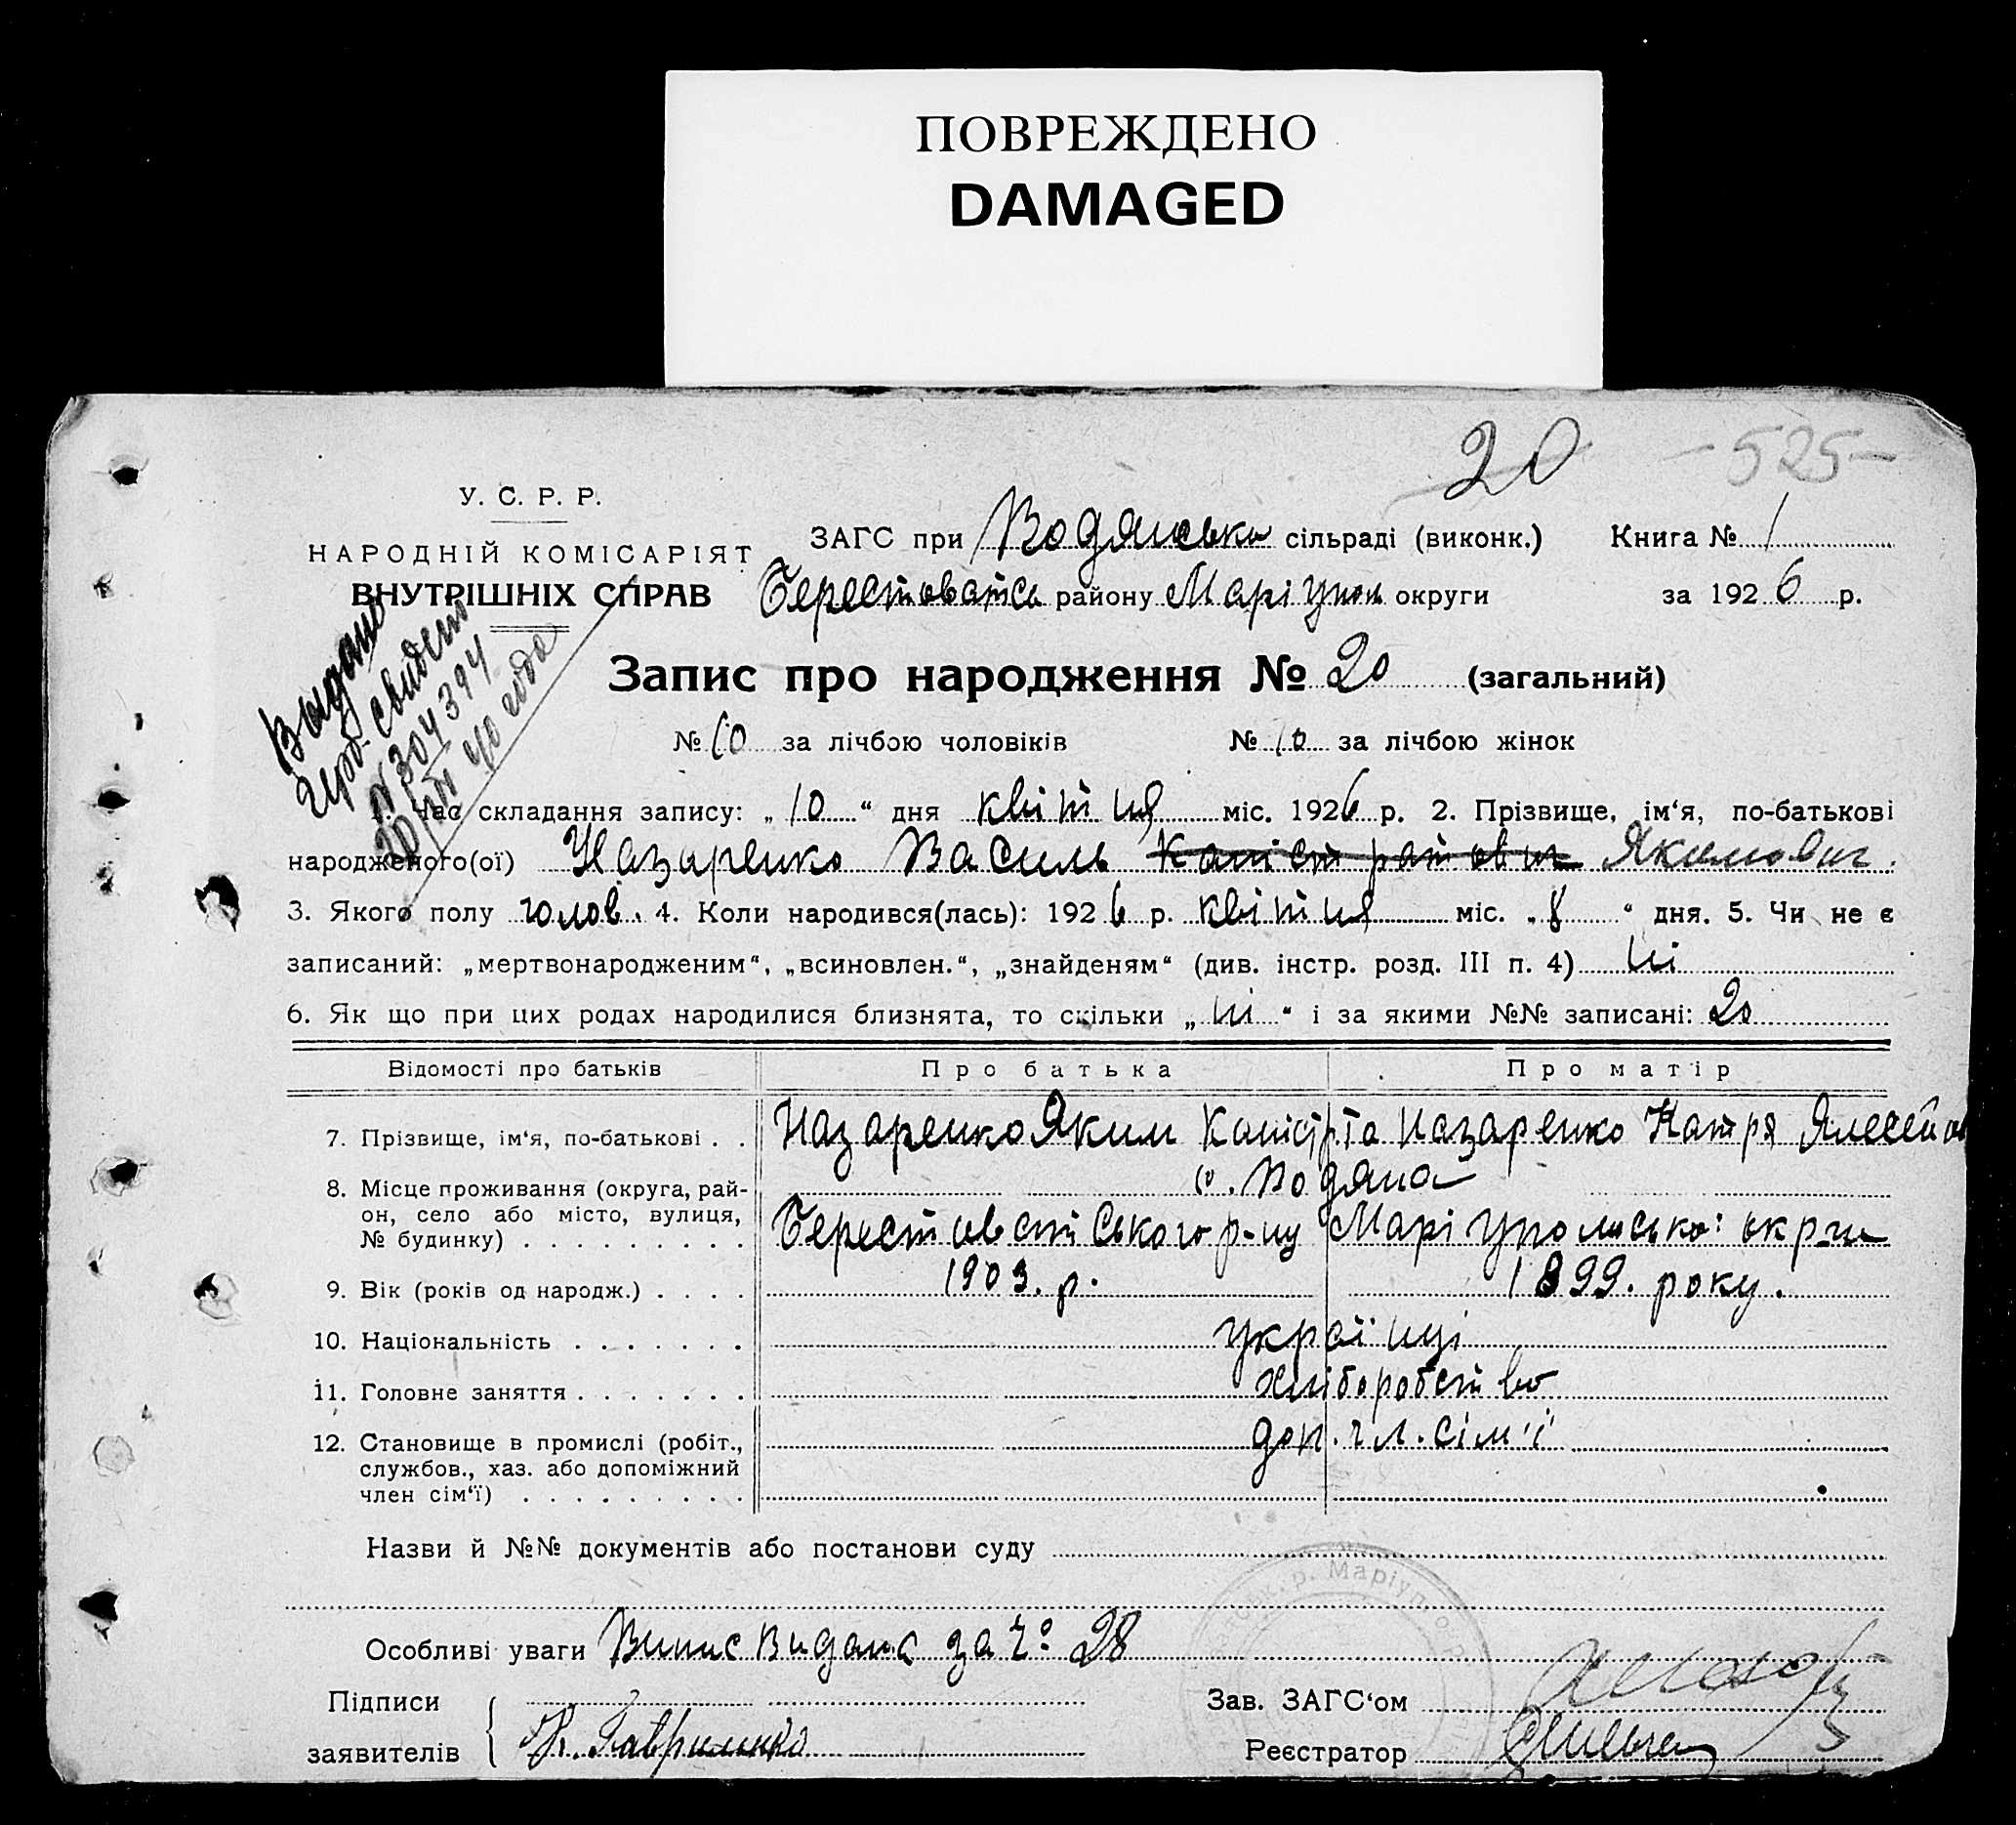 ПОВРЕЖДЕНО
DAMAGED
20 -525-
У. С. Р. Р.
НАРОДНІЙ КОМІСАРІЯТ
ВНУТРІШНІХ СПРАВ
ЗАГС при Водянськ сільраді (виконк.) Книга № 1
Берестоватськ району Маріуполь округи за 1926 р.
Выдано
герб. свидет
№304394
20/VII 40 года
Запис про народження № 20 (загальний)
№ 10 за лічбою чоловіків № 10 за лічбою жінок
1. Час складання запису: „ 10 “ дня квітня міс. 1926 р. 2. Прізвище, ім‘я, по-батькові
народженого(ої) Назаренко Василь Каністратович Якимович.
3. Якого полу чолов. 4. Коли народився(лась): 1926 р. квітня міс. „ 8 “ дня. 5. Чи не є
записаний: „мертвонародженим“, „всиновлен.“, „знайденям“ (див. інстр. розд. III п. 4) ні
6. Як що при цих родах народилися близнята, то скільки „ ні “ і за якими №№ записані: 20
Відомості про батьків Про батька Про матір
7. Прізвище, ім‘я, по-батькові . . Назаренко Яким Каністрта Назаренко Катря Ялесейов
8. Місце проживання (округа, рай-
он, село або місто, вулиця,
№ будинку) . . . . . . . . .
с. Водяна
Берестоватського р-ну Маріупольської окр-ги
9. Вік (років од народж.) . . . . 1903. р. 1899. року.
10. Національність . . . . . . . українці
11. Головне заняття . . . . . . . хліборобство
12. Становище в промислі (робіт.,
службов., хаз. або допоміжний
член сім‘ї) . . . . . . . . .
доп. чл. сім'ї
Назви й №№ документів або постанови суду
Особливі уваги Випис видана за ч: 28
Підписи
заявителів Гавриленко
Зав. ЗАГС‘ом
Реєстратор